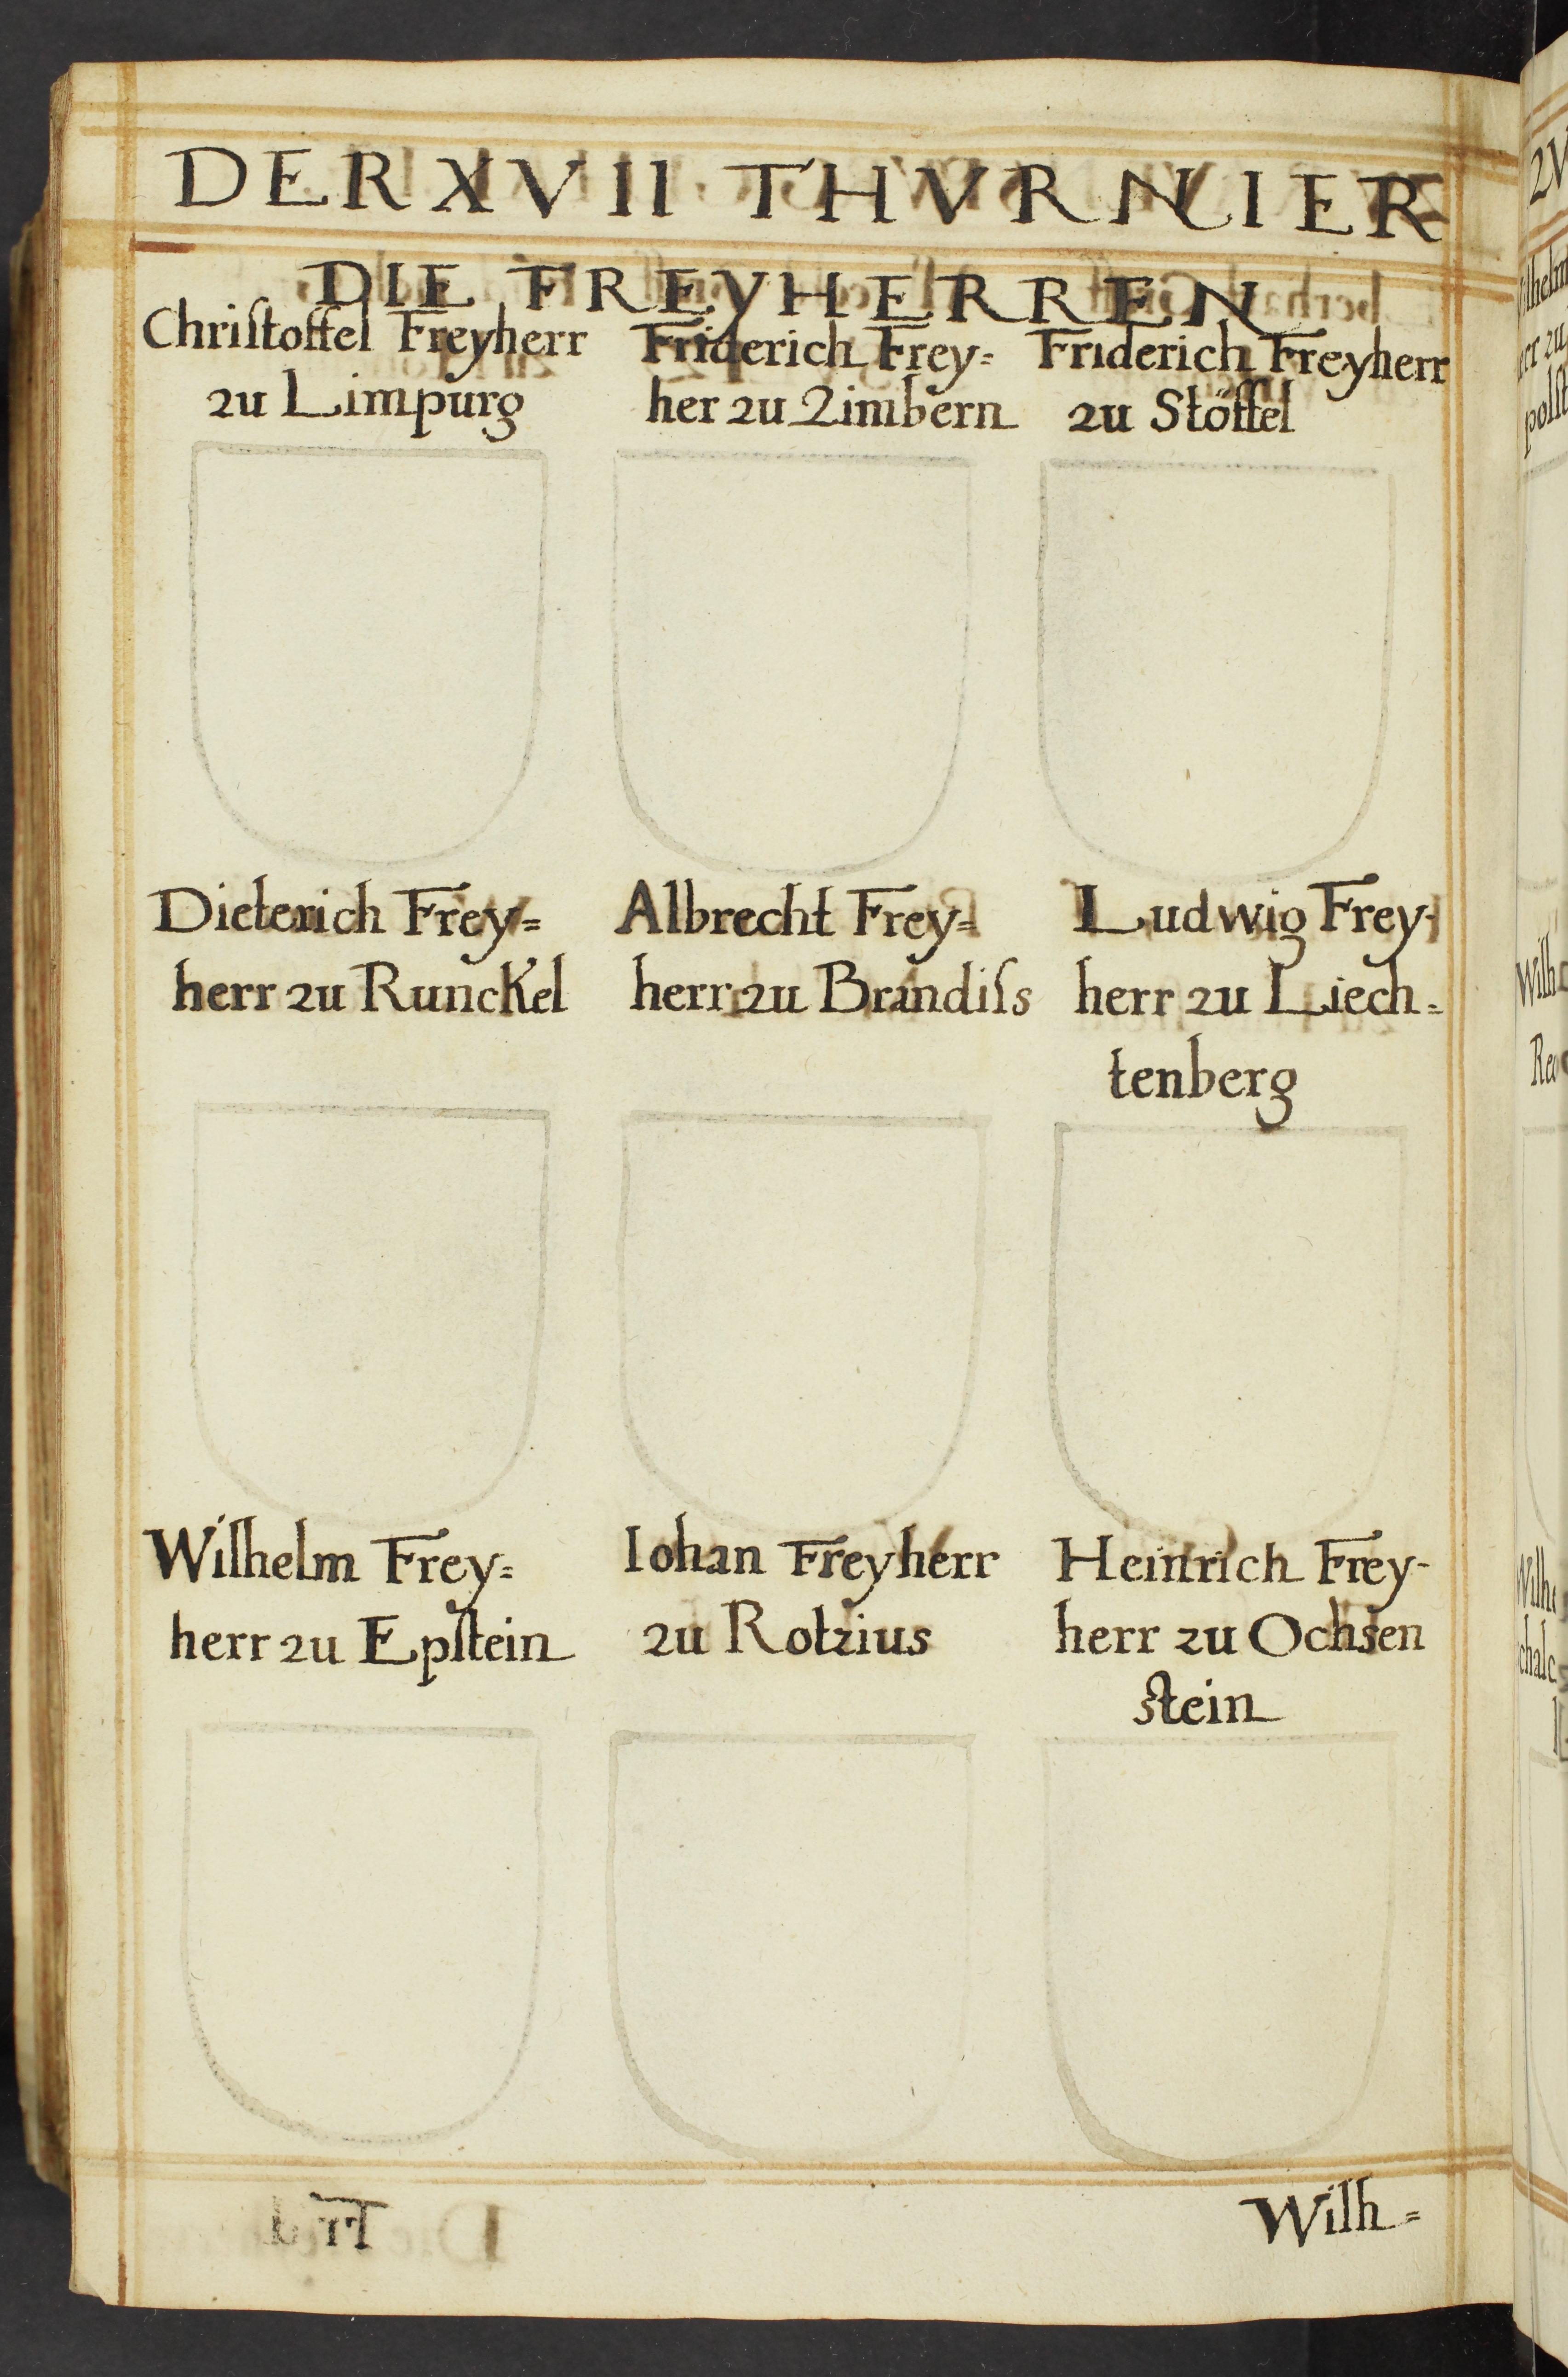 DER XVII THVRNIER
DIE FREYHERREN
Chriſtoffel Freyherr
zu Limpurg
Friderich Frey=
her zu Zimbern
Friderich Freyherr
zu Stöffel
Dieterich Frey=
herr zu Runckel
Albrecht Frey=
herr zu Brandiſs
Ludwig Frey-
herr zu Liech=
tenberg
Wilhelm Frey=
herr zu Epſtein
Iohan Freyherr
zu Rotzius
Heinrich Frey-
herr zu Ochsen
stein
Wilh=